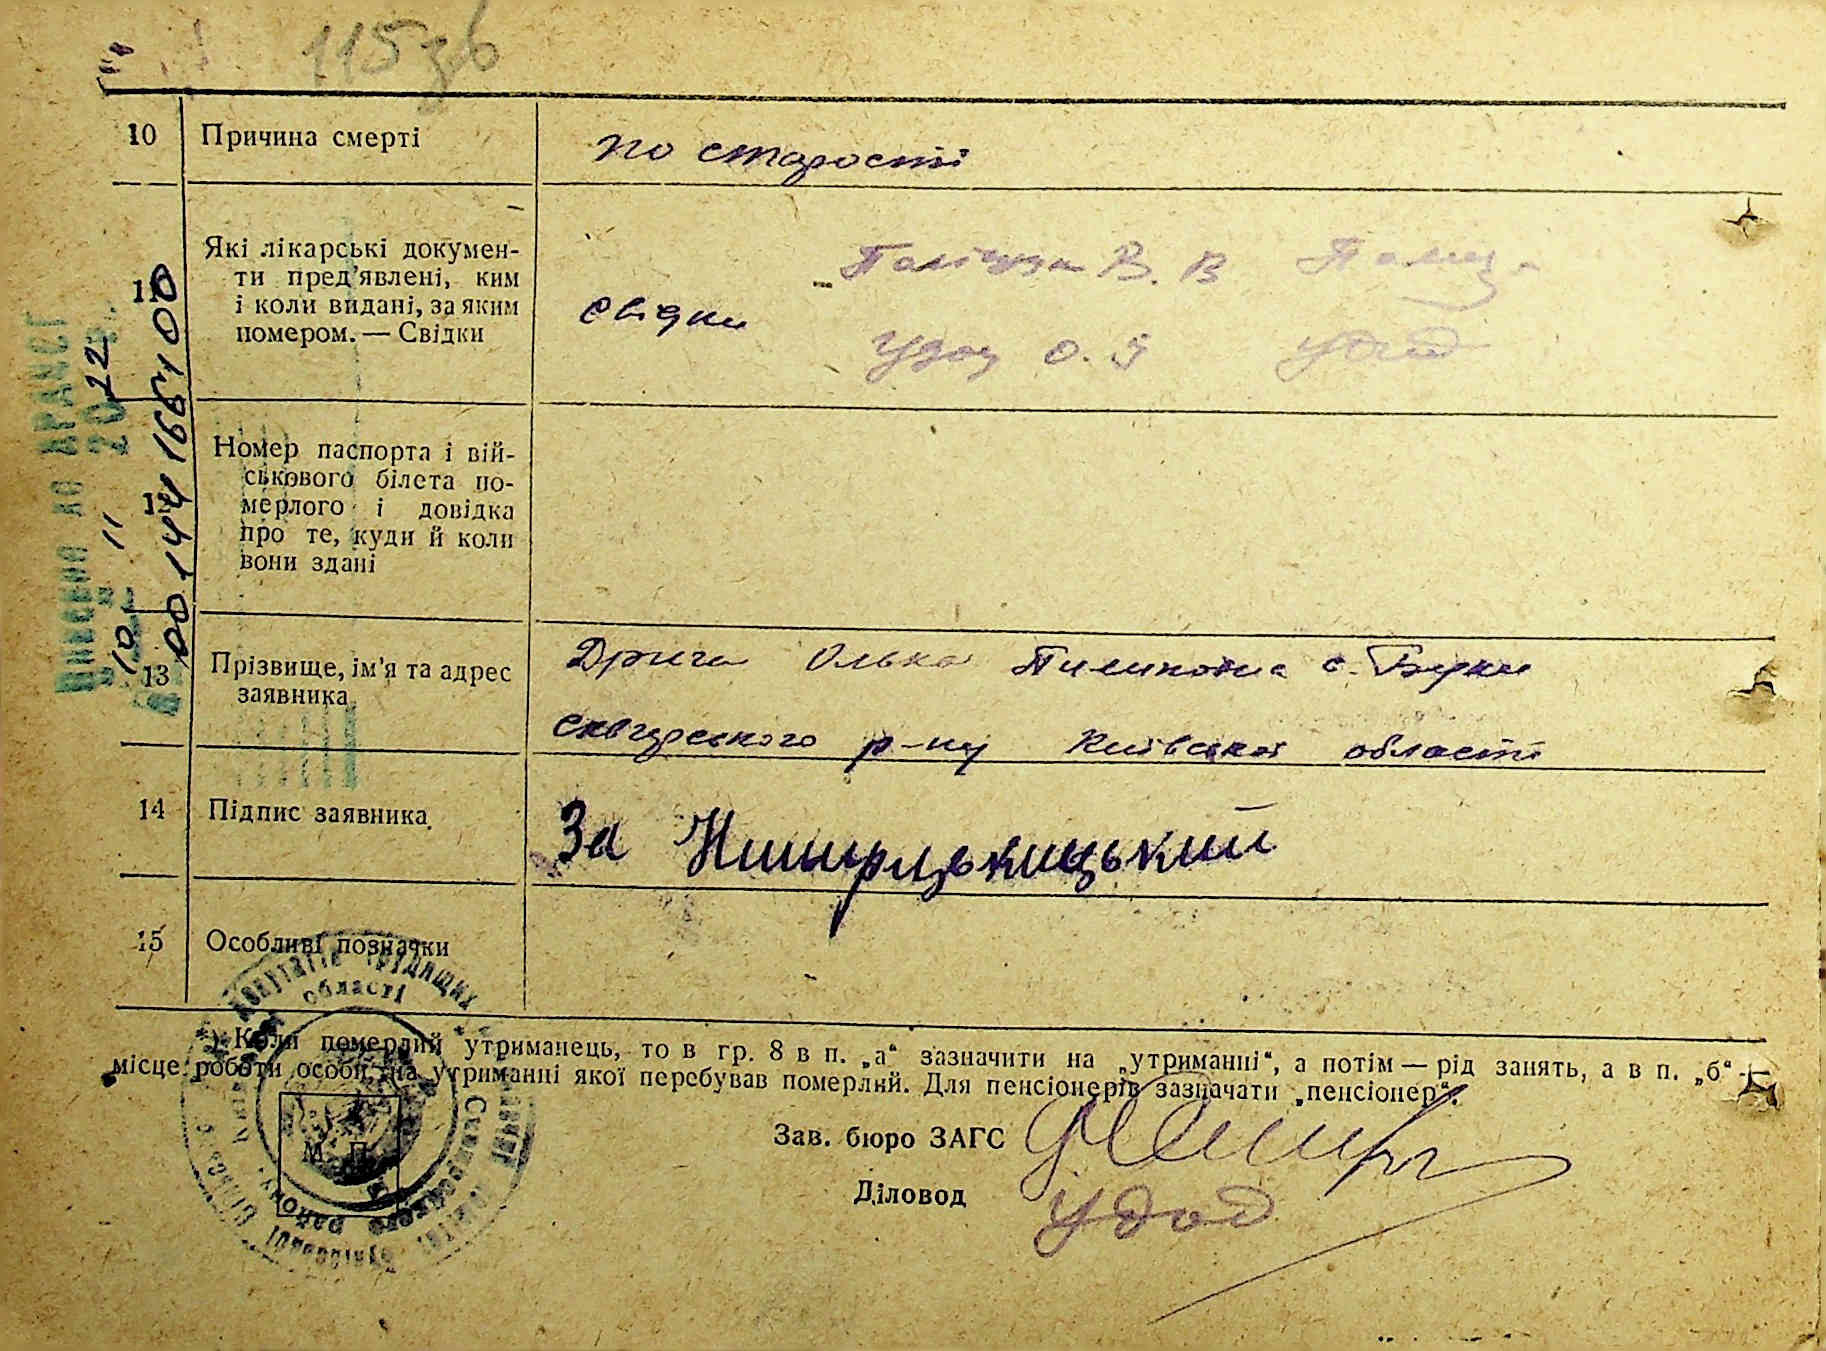 115 зв
10 Причина смерті по старості
11 Які лікарські докумен-
ти пред'явлені, ким
і коли видані, за яким
номером. — Свідки
свідки
Поліщук В. В
Удод О.
Удод
12 Номер паспорта і вій-
ськового білета по-
мерлого і довідка
про те, куди й коли
вони здані
13 Прізвище, ім'я та адрес
заявника
Дрига Олька Пилиповна с. Берки
сквирського р-ну Київської області
14 Підпис заявника
За
15 Особливі позначки
*) Коли померлий утриманець, то в гр. 8 в п. „а“ зазначити на „утриманні“, а потім — рід занять, а в п. „б“ —
місце роботи особи, на утриманні якої перебував померлий. Для пенсіонерів зазначати „пенсіонер“.
М. П.
Зав. бюро ЗАГС
Діловод Удод
депутатів трудящих
області
Сквирського району
10 11 2022
00144166100